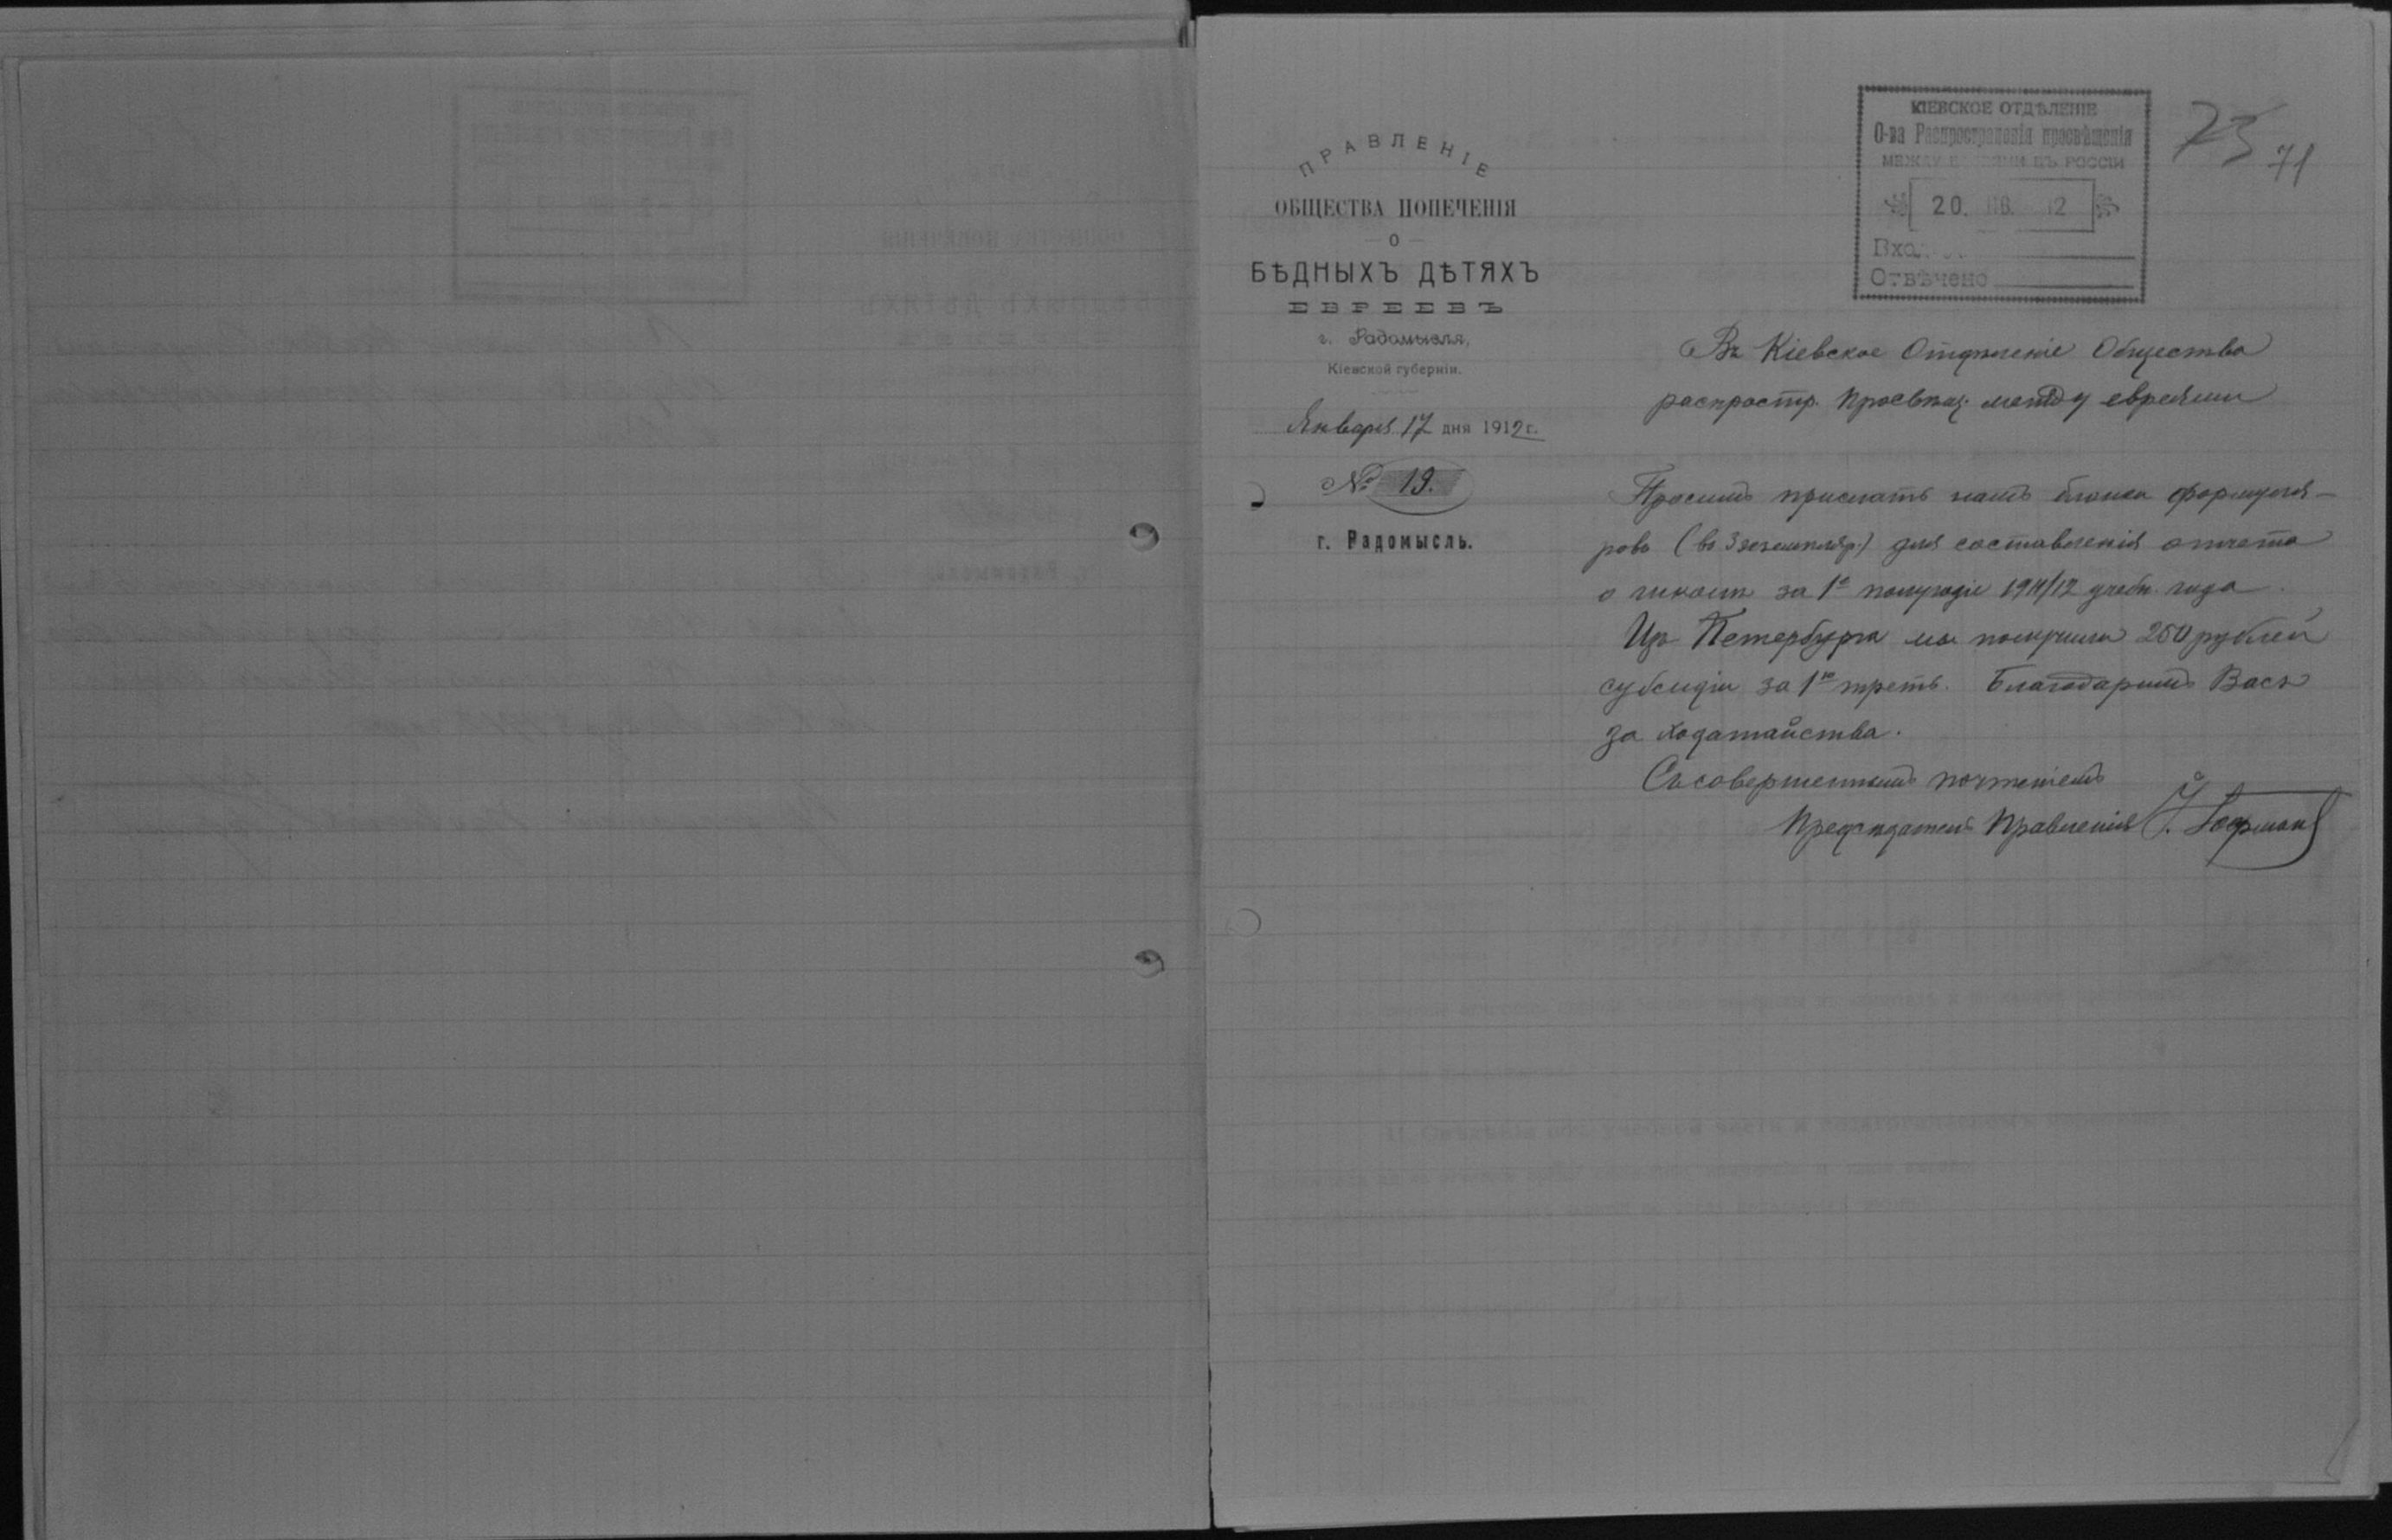 ПРАВЛЕНІЕ
ОБЩЕСТВА ПОПЕЧЕНІЯ
О
БѢДНЫХЪ ДѢТЯХЪ
ЕВРЕЕВЪ
г. Радомысля,
Кіевской губерніи.
Января 17 дня 1912 г.
№ 19.
г. Радомысль.
КІЕВСКОЕ ОТДѢЛЕНІЕ
О-ва Распространенія просвѣщенія
МЕЖДУ ЕВРЕЯМИ ВЪ РОССІИ
20. 12
Вхо
Отвѣчено
73
71
Въ Кіевское Отдѣленіе Общества
распростр. просвѣщ. между евреями
Просимъ прислать намъ бланки формуля-
ровъ (въ 3 экземпляр.) для составленія отчета
о школѣ за 1е полугодіе 1911/12 учебн. года.
Изъ Петербурга мы получили 250 рублей
субсидіи за 1ю треть. Благодаримъ Васъ
за ходатайства.
Съ совершеннымъ почтеніемъ
Предсѣдатель Правленія Гофман